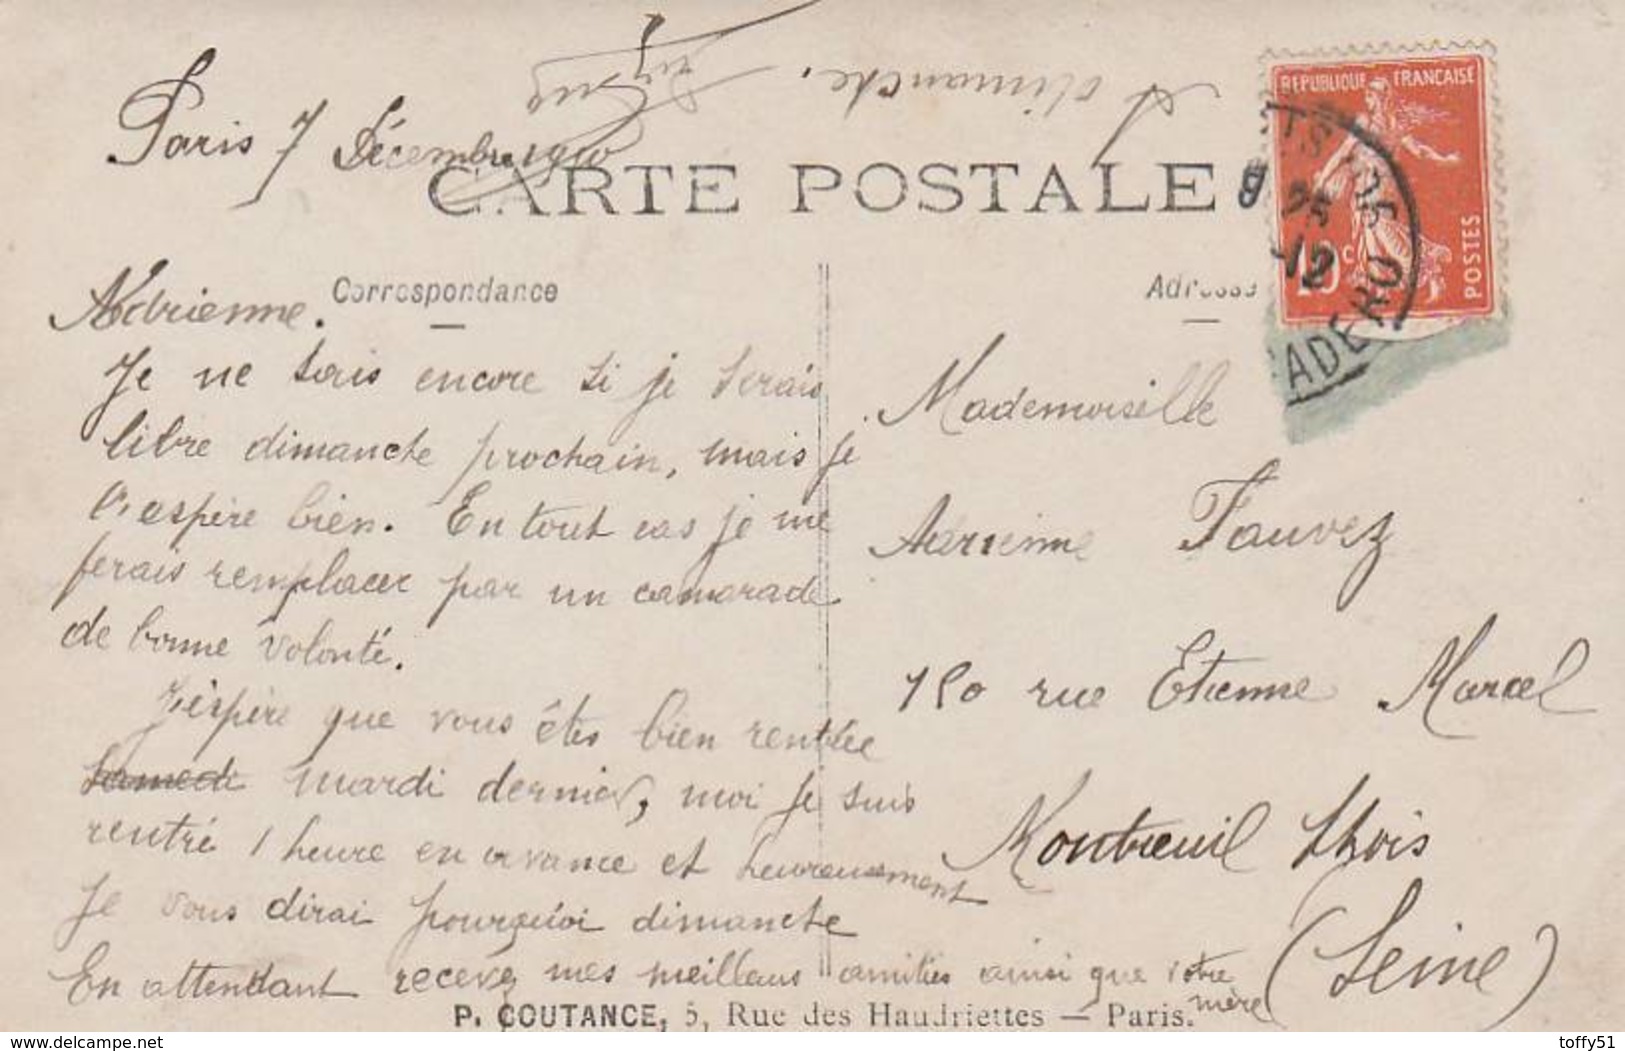 Paris 7 Décembre 1910
A dimanche.
CARTE POSTALE
Correspondance
Adresse
REPUBLIQUE FRANCAISE
10 c
POSTES
12
CADERO
Adrienne.
Je ne sais encore si je serais
libre dimanche prochain, mais je
l'espère bien. En tout cas je me
ferais remplacer par un camarade
de bonne volonté.
J'espère que vous êtes bien rentrée
samedi mardi dernier, moi je suis
rentré 1 heure en avance et heureusement
Je vous dirai pourquoi dimanche
En attendant recevez mes meilleurs amitiés ainsi que votre
mère
Mademoiselle
Adrienne Fauvez
180 rue Etienne Marcel
Montreuil s/bois
(Seine)
P. COUTANCE, 5, Rue des Haudriettes — Paris.
delcampe.net
toffy51